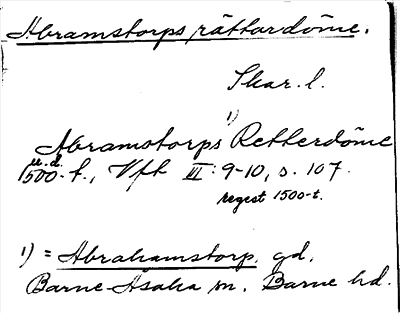 Abramstorps rättardöme.
Skar. l.
1)
Abramstorps Retterdöme
u.d.
1500-t., Vft III: 9-10, s. 107.
regest 1500-t.
1) = Abrahamstorp, gd,
Barne-Åsaka sn. Barne hd.